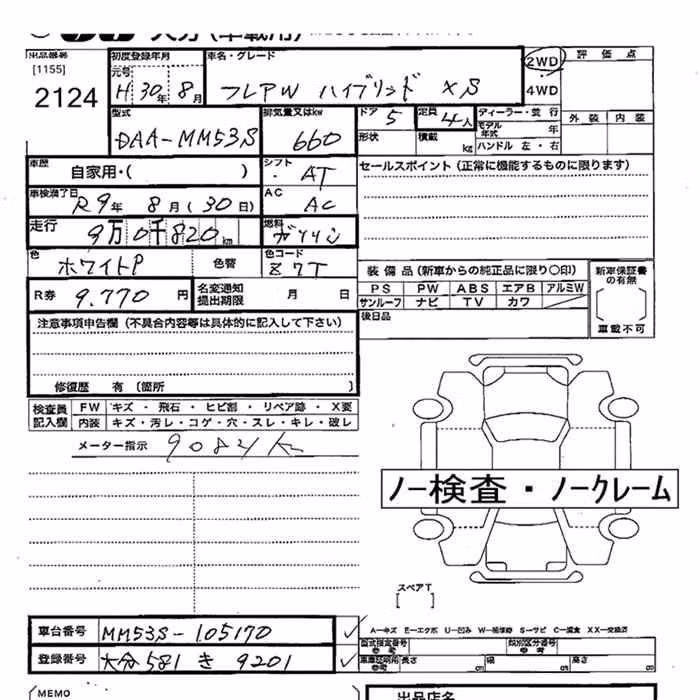 出品番号 [1155] 2124
初度登録年月 元号 H 30年 8月
車名・グレード フレアW ハイブリッド XS
2WD 4WD
評価点
外装 内装
型式 DAA-MM53S
排気量又はkw 660
ドア 5
形状
定員 4人
積載 kg
ディーラー・並行
モデル年式 年
ハンドル 左・右
車歴 自家用・( )
シフト AT
セールスポイント (正常に機能するものに限ります)
車検満了日 R9年 8月(30日)
AC AC
走行 9万0千820km
燃料 ガソリン
色 ホワイトP 色替
色コード Z7T
装備品(新車からの純正品に限り○印)
PS PW ABS エアB アルミW
サンルーフ ナビ TV カワ
新車保証書の有無
車載不可
後日品
R券 9.770円
名変通知提出期限 月 日
注意事項申告欄(不具合内容等は具体的に記入して下さい)
修復歴 有 〔箇所 〕
検査員記入欄
FW キズ・飛石・ヒビ割・リペア跡・X要
内装 キズ・汚レ・コゲ・穴・スレ・キレ・破レ
メーター指示
ノー検査・ノークレーム
スペアT
[ ]
車台番号 MM53S-105170
登録番号 大分 581 き 9201
A-キズ E-エクボ U-凹み W-補修跡 S-サビ C-腐食 XX-交換済
型式指定番号 参考
類別区分番号 参考
車庫証明用 参考 長さ cm 幅 cm 高さ cm
MEMO
出品店名